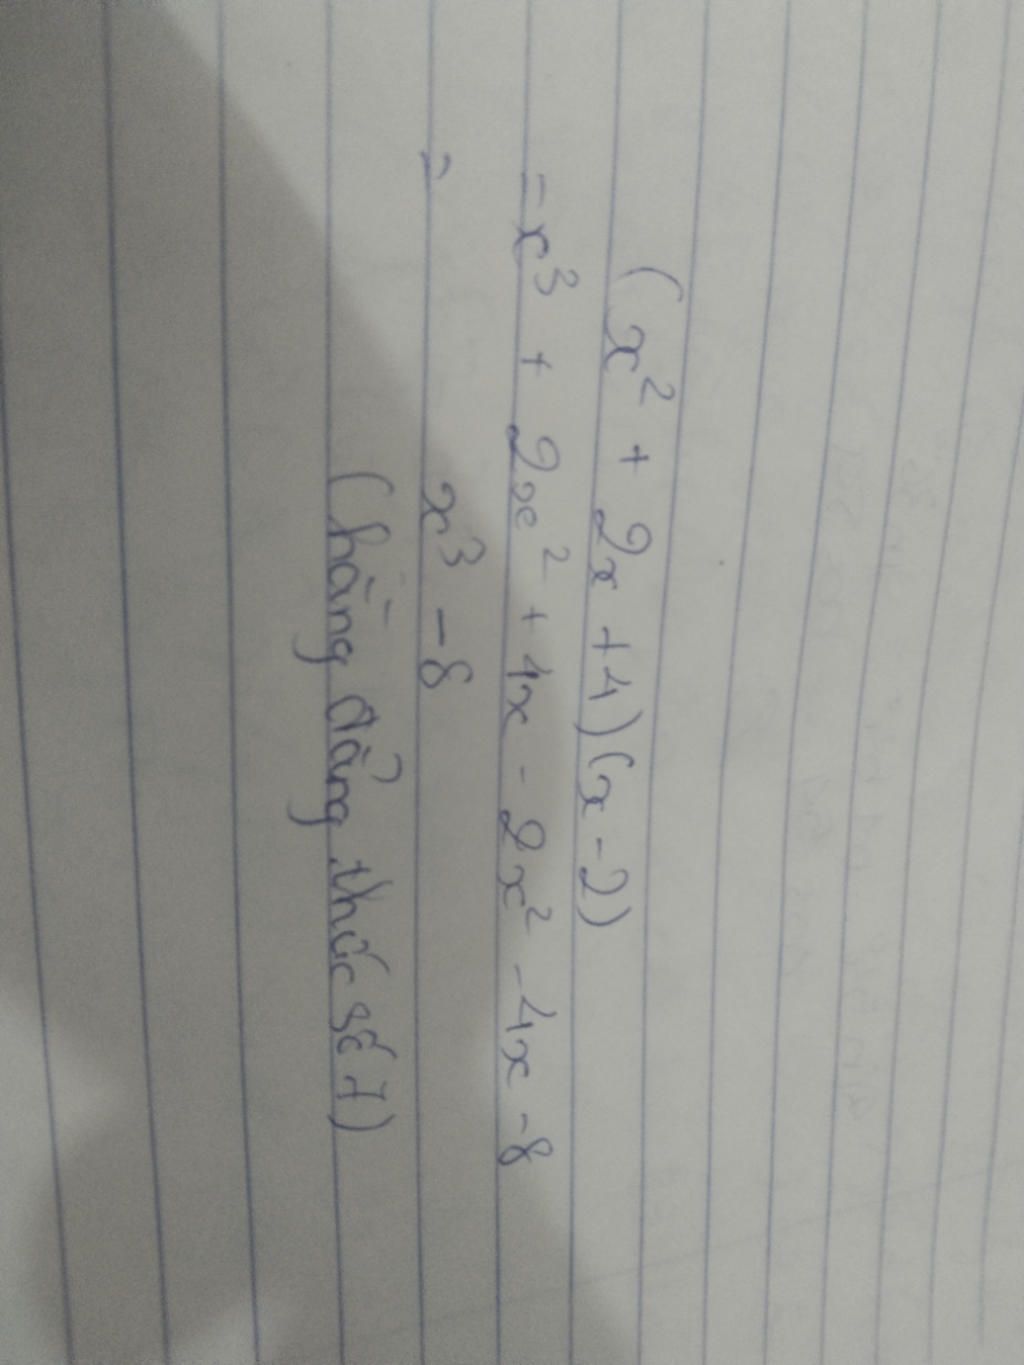 (x² + 2x + 4)(x - 2)
= x³ + 2x² + 4x - 2x² - 4x - 8
= x³ - 8
(hằng đẳng thức số 7)